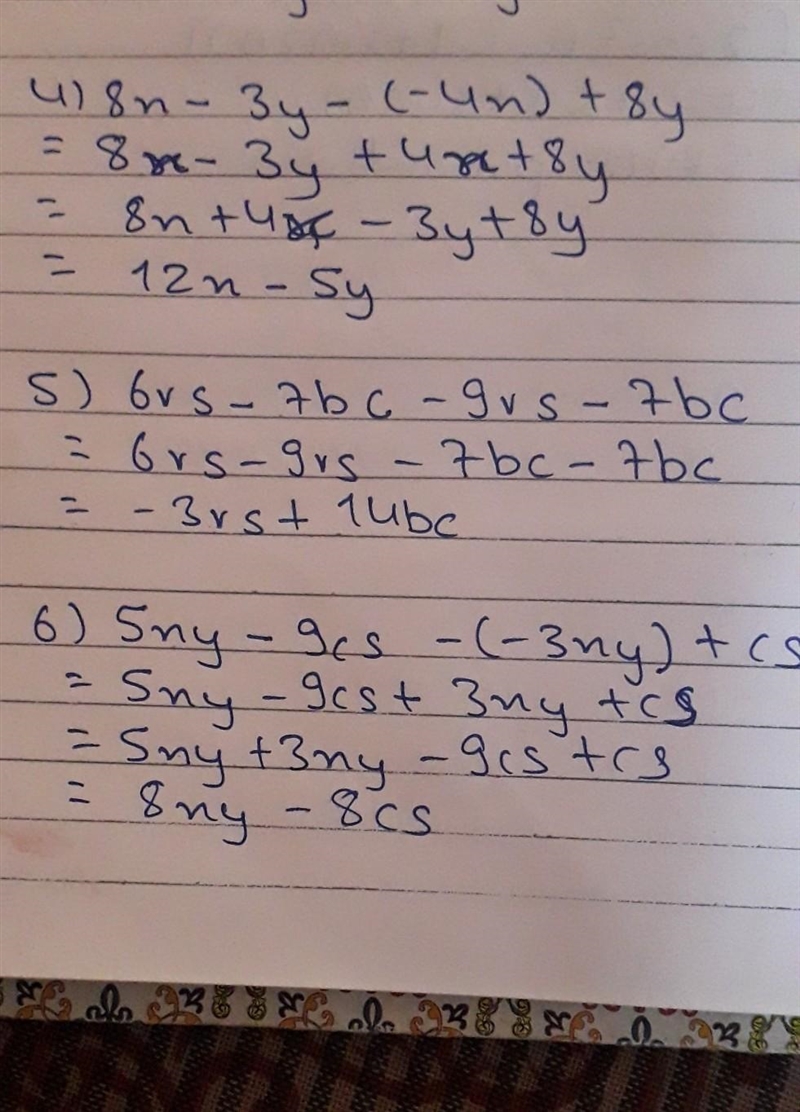 4) 8x - 3y - (-4x) + 8y
= 8x - 3y + 4x + 8y
= 8x + 4x - 3y + 8y
= 12x - 5y
5) 6rs - 7bc - 9rs - 7bc
= 6rs - 9rs - 7bc - 7bc
= -3rs + 14bc
6) 5xy - 9cs - (-3xy) + cs
= 5xy - 9cs + 3xy + cs
= 5xy + 3xy - 9cs + cs
= 8xy - 8cs